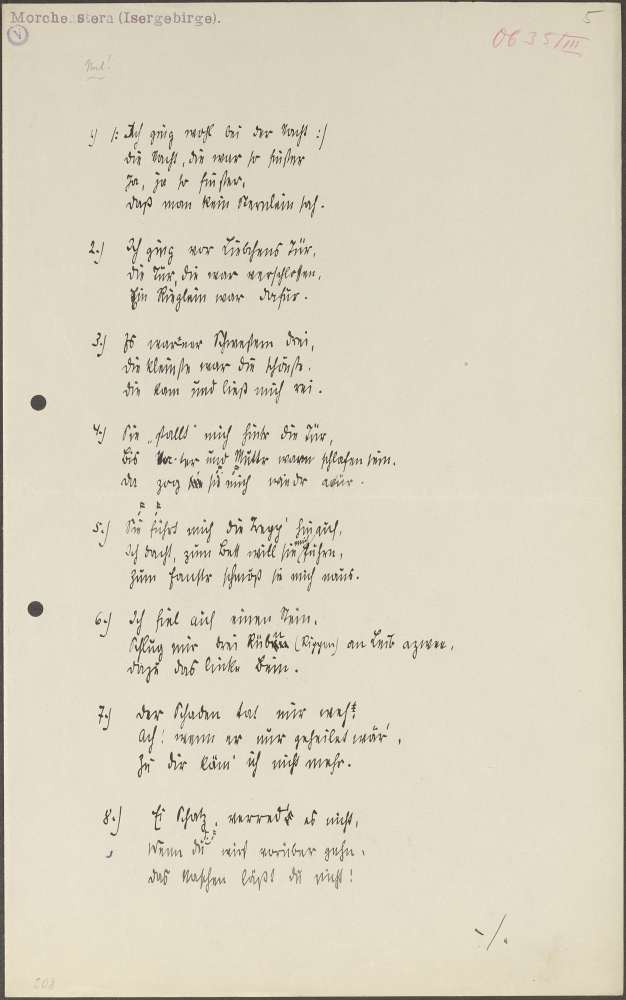 Morchenstern (Isergebirge).
5
V
06 35/III
1.) /: Ich ging wohl bei der Nacht :/
die Nacht, die war so finster
Ja, ja so finster,
daß man kein Sternlein sah.
2.) Ich ging vor Liebchens Tür,
die Tür, die war verschlossen,
Ein Rieglein war dafür.
3.) Es waren der Schwestern drei,
die kleinste war die schönste.
die kam und ließ mich rei.
4.) Sie „stallt“ mich hinter die Tür,
Bis Vater und Muttr warn schlafen sein.
da zog sie mich wiedr avür.
5.) Sie führt mich die Trepp' hinauf,
Ich dacht, zum Bett will sie mich führen,
Zum Fanstr schmäß sie mich naus.
6.) Ich fiel auf einen Stein,
Schlug mir drei (Rippen) an Leib azwee,
dazu das linke Bein.
7.) der Schaden tat mir weh!
Ach! wenn er nur geheilet wär',
Zu dir käm' ich nicht mehr.
8.) Ei Schatz, verred es nicht,
Wenn du wirst vorüber gehn,
das Naschen läßt du nicht!
-/.
208